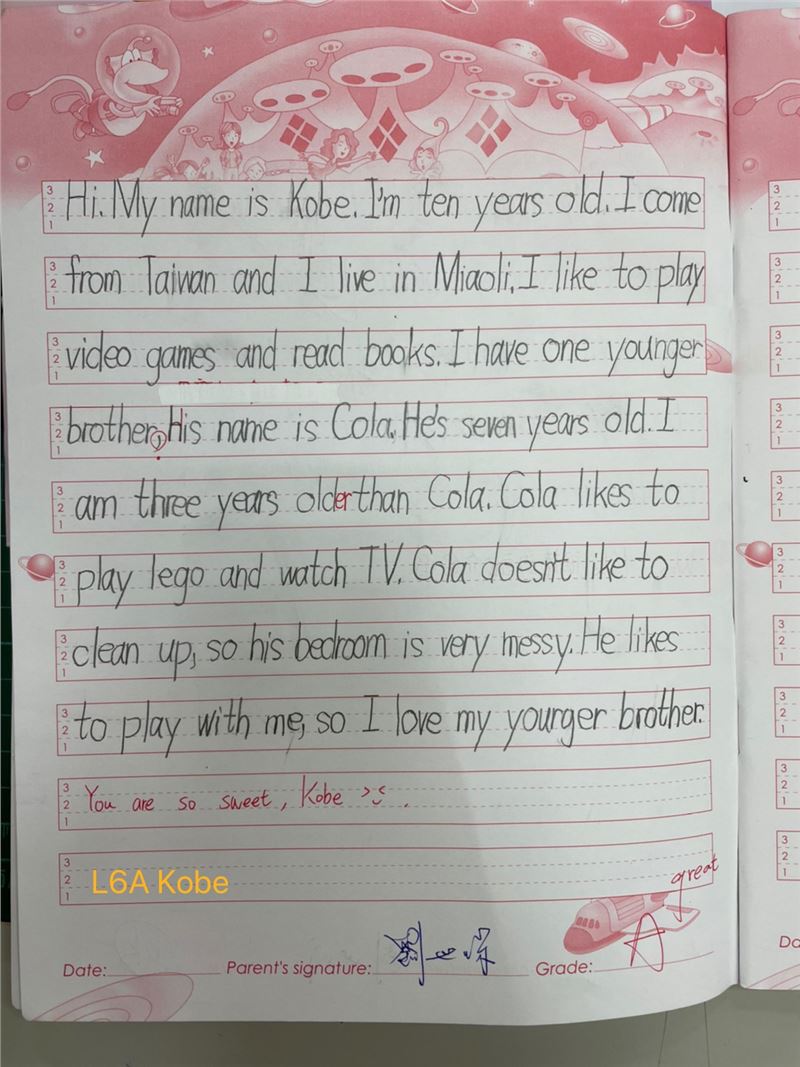 Hi. My name is Kobe. I'm ten years old. I come
from Taiwan and I live in Miaoli. I like to play
video games and read books. I have one younger
brother, His name is Cola. He's seven years old. I
am three years older than Cola. Cola likes to
play lego and watch TV. Cola doesn't like to
clean up, so his bedroom is very messy. He likes
to play with me, so I love my yourger brother.
You are so sweet, Kobe
L6A Kobe
great
A
Date: Parent's signature: Grade: